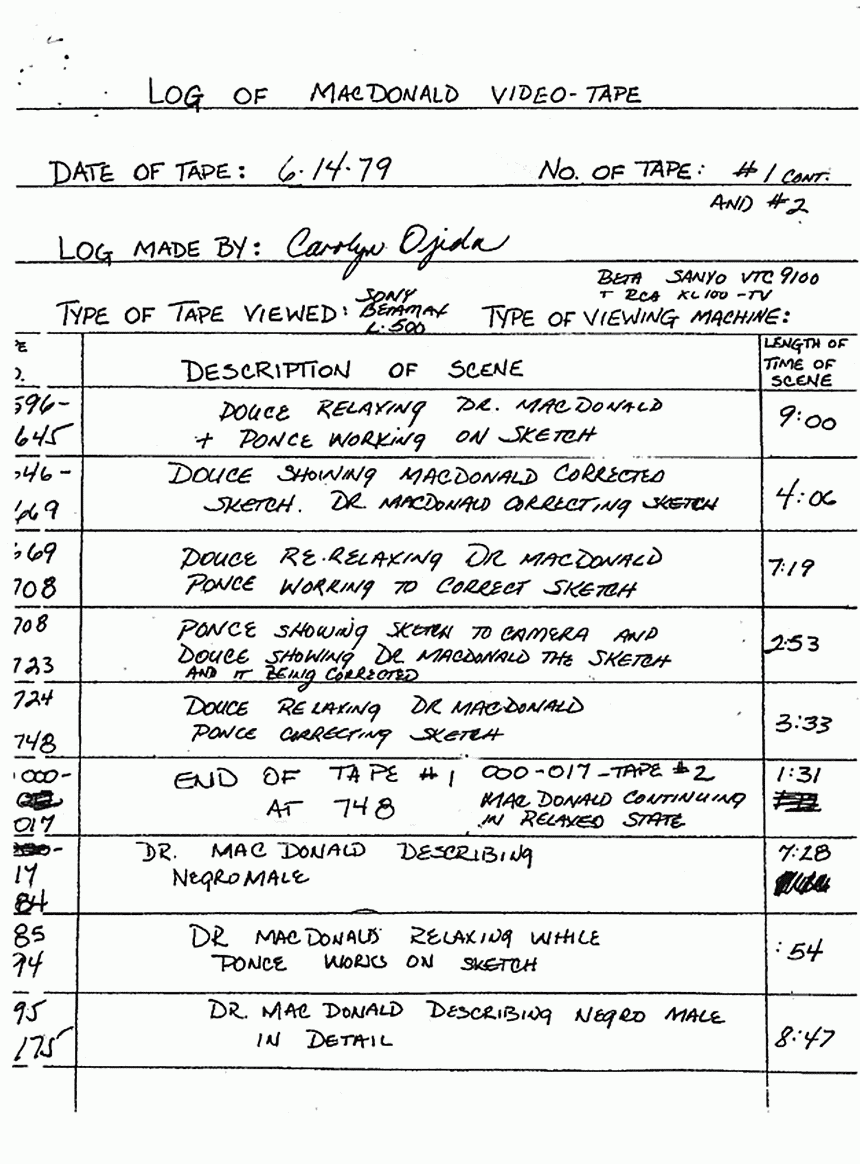 LOG OF MACDONALD VIDEO-TAPE
DATE OF TAPE: 6-14-79 NO. OF TAPE: #1 CONT.
AND #2
LOG MADE BY: Carolyn Ojida
BETA SANYO VTC 9100
T RCA XL100-TV
TYPE OF TAPE VIEWED: SONY BETAMAX L-500 TYPE OF VIEWING MACHINE:
DESCRIPTION OF SCENE
LENGTH OF TIME OF SCENE
596- DOUCE RELAXING DR. MACDONALD 9:00
645 + PONCE WORKING ON SKETCH
646- DOUCE SHOWING MACDONALD CORRECTED 4:06
669 SKETCH. DR. MACDONALD CORRECTING SKETCH
669 DOUCE RE-RELAXING DR MACDONALD 7:19
708 PONCE WORKING TO CORRECT SKETCH
708 PONCE SHOWING SKETCH TO CAMERA AND 2:53
723 DOUCE SHOWING DR MACDONALD THE SKETCH
AND IT BEING CORRECTED
724 DOUCE RELAXING DR MACDONALD 3:33
748 PONCE CORRECTING SKETCH
000- END OF TAPE #1 000-017-TAPE #2 1:31
AT 748 MACDONALD CONTINUING
017 IN RELAXED STATE
DR. MAC DONALD DESCRIBING 7:28
17 NEGRO MALE
84
85 DR MACDONALD RELAXING WHILE :54
94 PONCE WORKS ON SKETCH
95 DR. MAC DONALD DESCRIBING NEGRO MALE 8:47
175 IN DETAIL